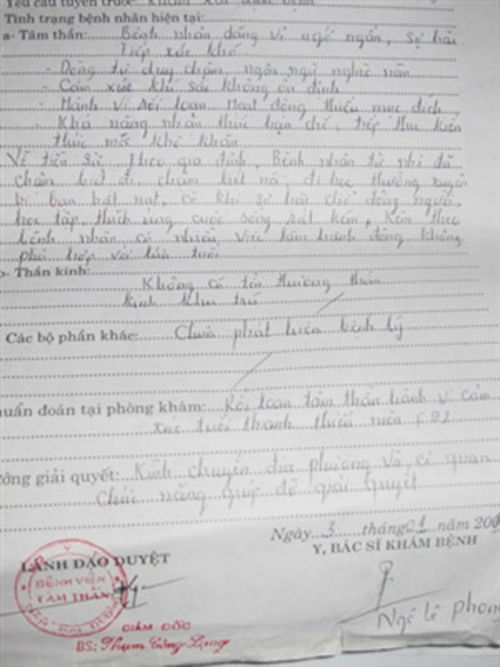 Yêu cầu tuyến trước: Khám
Tình trạng bệnh nhân hiện tại:
a- Tâm thần: Bệnh nhân dáng vẻ ngơ ngẩn, sợ hãi
Tiếp xúc khó
- Dòng tư duy chậm, ngôn ngữ nghèo nàn
- Cảm xúc khí sắc không ổn định
- Hành vi rối loạn hoạt động thiếu mục đích
- Khả năng nhận thức hạn chế, tiếp thu kiến
thức mới khó khăn
Về tiền sử, theo gia đình, Bệnh nhân từ nhỏ đã
chậm biết đi, chậm biết nói, đi học thường xuyên
bị bạn bắt nạt, có khi sợ hãi chỗ đông người,
học tập, thích ứng cuộc sống rất kém, kèm theo
bệnh nhân có nhiều việc làm hành động không
phù hợp với lứa tuổi
b- Thần kinh:
Không có tổn thương thần
kinh khu trú
Các bộ phần khác: Chưa phát hiện bệnh lý
uẩn đoán tại phòng khám: Rối loạn tâm thần hành vi cảm
xúc tuổi thanh thiếu niên F92
ớng giải quyết: Kính chuyển địa phương và cơ quan
Chức năng giúp đỡ giải quyết
Ngày 3 tháng 01 năm 200
LÃNH ĐẠO DUYỆT
Y, BÁC SĨ KHÁM BỆNH
BỆNH VIỆN
TÂM THẦN
GIÁM ĐỐC
BS: Phạm Công
Ngô Lê Phong